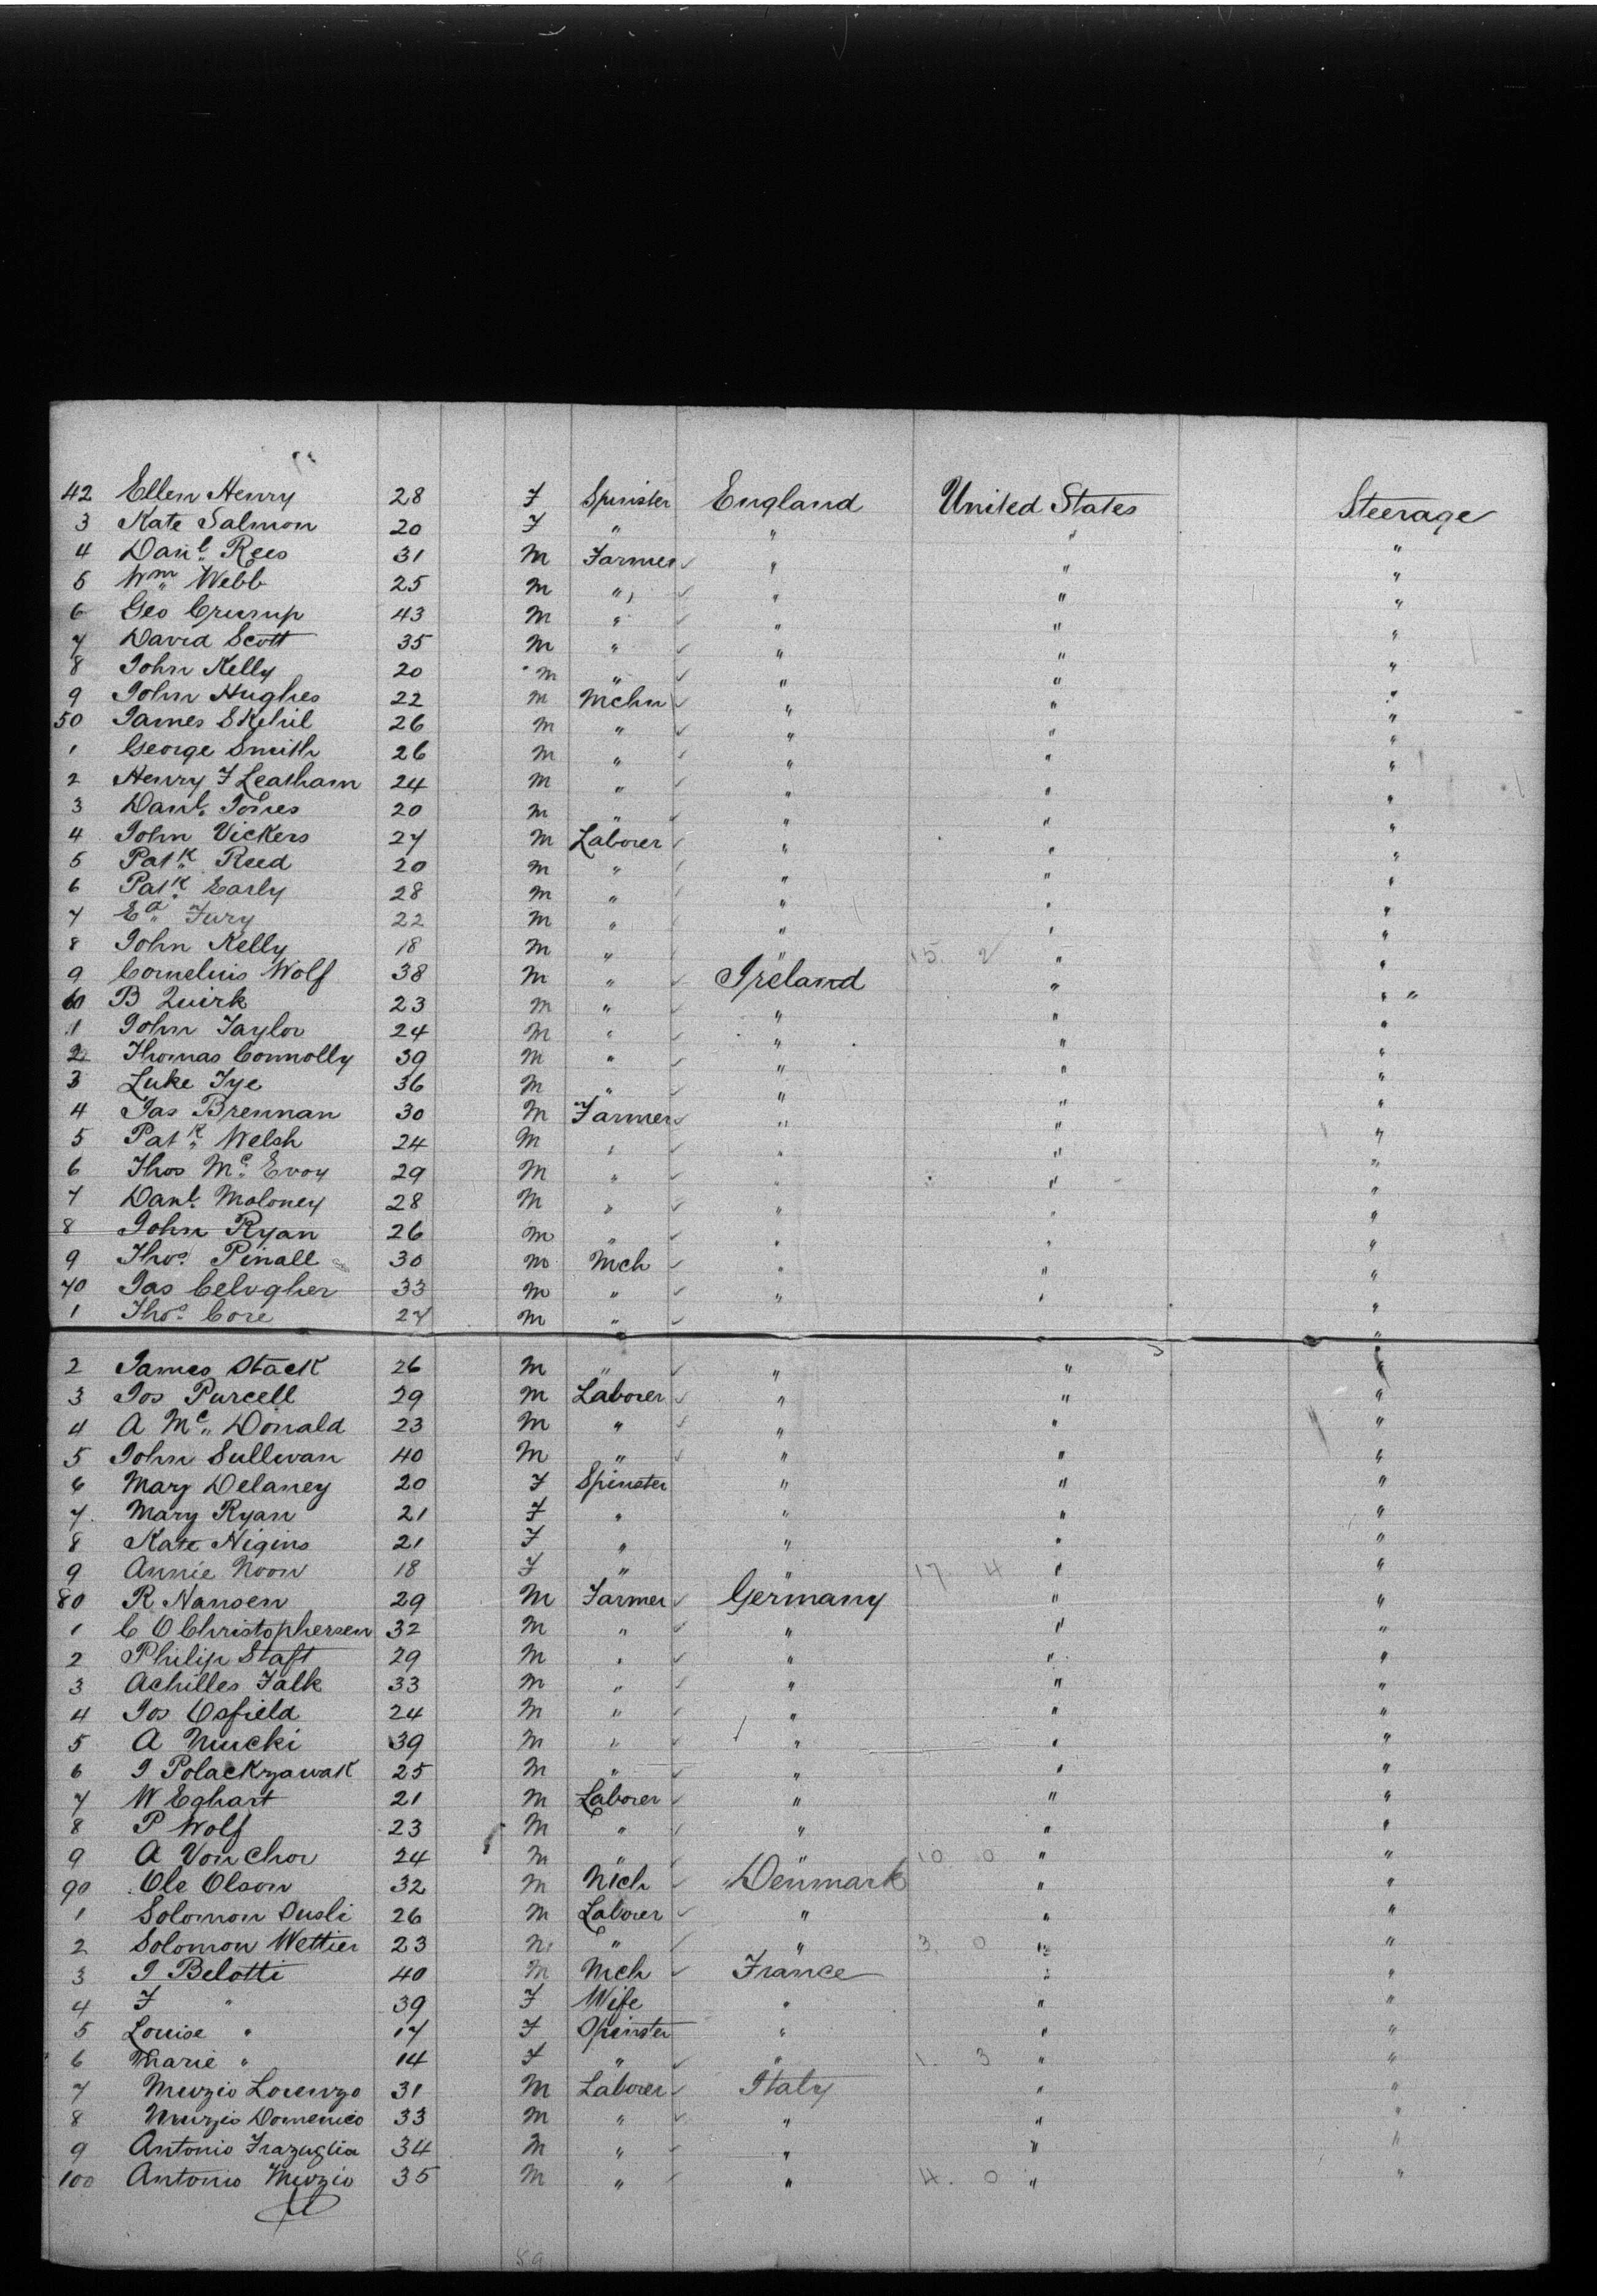 42 Ellen Henry 28 F Spinster England United States Steerage
3 Kate Salmon 20 F " " " "
4 Danl. Rees 31 M Farmer " " "
5 Wm Webb 25 M " " " "
6 Geo Crump 43 M " " " "
7 David Scott 35 M " " " "
8 John Kelly 20 M " " " "
9 John Hughes 22 M Mchn " " "
50 James Skehil 26 M " " " "
1 George Smith 26 M " " " "
2 Henry F Leatham 24 M " " " "
3 Danl. Jones 20 M " " " "
4 John Vickers 27 M Laborer " " "
5 Patk. Reed 20 M " " " "
6 Patk. Early 28 M " " " "
7 Ed. Fury 22 M " " " "
8 John Kelly 18 M " " 15. 2 " "
9 Cornelius Wolf 38 M " Ireland " "
60 B Quirk 23 M " " " " "
1 John Taylor 24 M " " " "
2 Thomas Connolly 39 M " " " "
3 Luke Tye 36 M " " " "
4 Jas Brennan 30 M Farmer " " "
5 Patk. Welsh 24 M " " " "
6 Thos Mc. Evoy 29 M " " " "
7 Danl. Moloney 28 M " " " "
8 John Ryan 26 M " " " "
9 Thos. Pinall 30 M Mch " " "
70 Jas Celogher 33 M " " " "
1 Thos. Core 27 M " "
2 James Stack 26 M " " " "
3 Jos Purcell 29 M Laborer " " "
4 A Mc. Donald 23 M " " " "
5 John Sullivan 40 M " " " "
6 Mary Delaney 20 F Spinster " " "
7 Mary Ryan 21 F " " " "
8 Kate Higins 21 F " " " "
9 Annie Noon 18 F " " 17 4 " "
80 R Hansen 29 M Farmer Germany " "
1 C O Christophersen 32 M " " " "
2 Philip Staft 29 M " " " "
3 Achilles Falk 33 M " " " "
4 Jos Osfield 24 M " " " "
5 A 39 M " " " "
6 I Polackzawak 25 M " " " "
7 W Eghart 21 M Laborer " " "
8 P Wolf 23 M " " " "
9 A Von Chor 24 M " " 10 0 " "
90 Ole Olson 32 M Mch Denmark " "
1 Solomon Dusli 26 M Laborer " " "
2 Solomon Wettier 23 M " " 3. 0 " "
3 J Belotti 40 M Mch France " "
4 F " 39 F Wife " " "
5 Louise " 17 F Spinster " " "
6 Marie " 14 F " " 1. 3 " "
7 Muzio Lorenzo 31 M Laborer Italy " "
8 Muzio Domenico 33 M " " " "
9 Antonio Frazuglia 34 M " " " "
100 Antonio Muzio 35 M " " 4. 0 " "
89